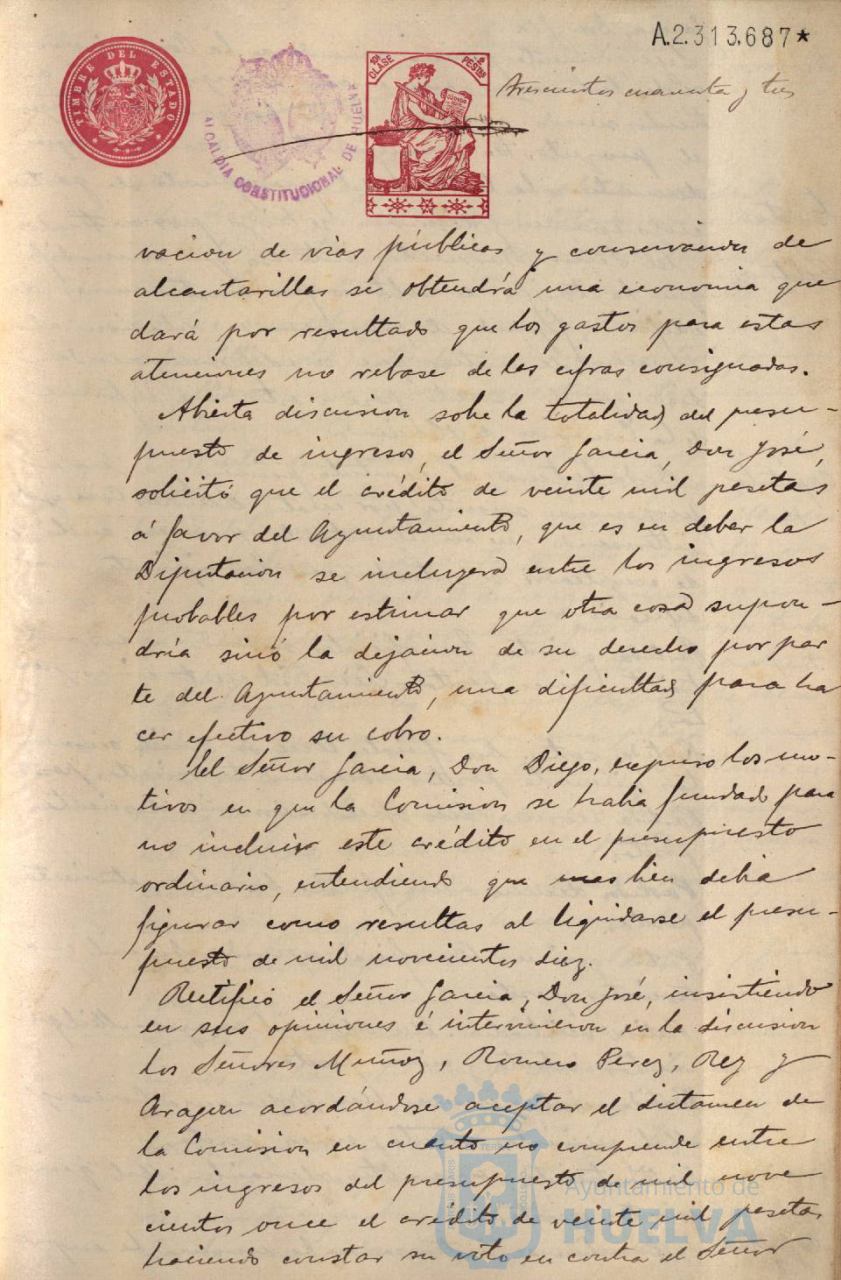 A.2.313.687*
TIMBRE DEL ESTADO
ALCALDIA CONSTITUCIONAL DE HUELVA
10ª CLASE
2 PESTAS
Trescientos cuarenta y tres
vacion de vías públicas y conservacion de
alcantarillas se obtendrá una economia que
dará por resultado que los gastos para estas
atenciones no rebase de las cifras consignadas.
Abierta discusion sobre la totalidad del presu-
puesto de ingresos, el Señor Garcia, Don José,
solicitó que el crédito de veinte mil pesetas
á favor del Ayuntamiento, que es en deber la
Diputacion se incluyera entre los ingresos
probables por estimar que otra cosa supon-
dría sinó la dejacion de su derecho por par
te del Ayuntamiento, una dificultad para ha
cer efectivo su cobro.
El Señor Garcia, Don Diego, expuso los mo-
tivos en que la Comision se habia fundado para
no incluir este crédito en el presupuesto
ordinario, entendiendo que mas bien debia
figurar como resultas al liquidarse el presu-
puesto de mil novecientos diez.
Rectificó el Señor Garcia, Don José, insistiendo
en sus opiniones é intervinieron en la discusion
los Señores Muñoz, Romero Perez, Rey y
Aragon acordándose aceptar el dictamen de
la Comision en cuanto no comprende entre
los ingresos del presupuesto de mil nove
cientos once el crédito de veinte mil pesetas,
haciendo constar su voto en contra el Señor
Ayuntamiento de
HUELVA